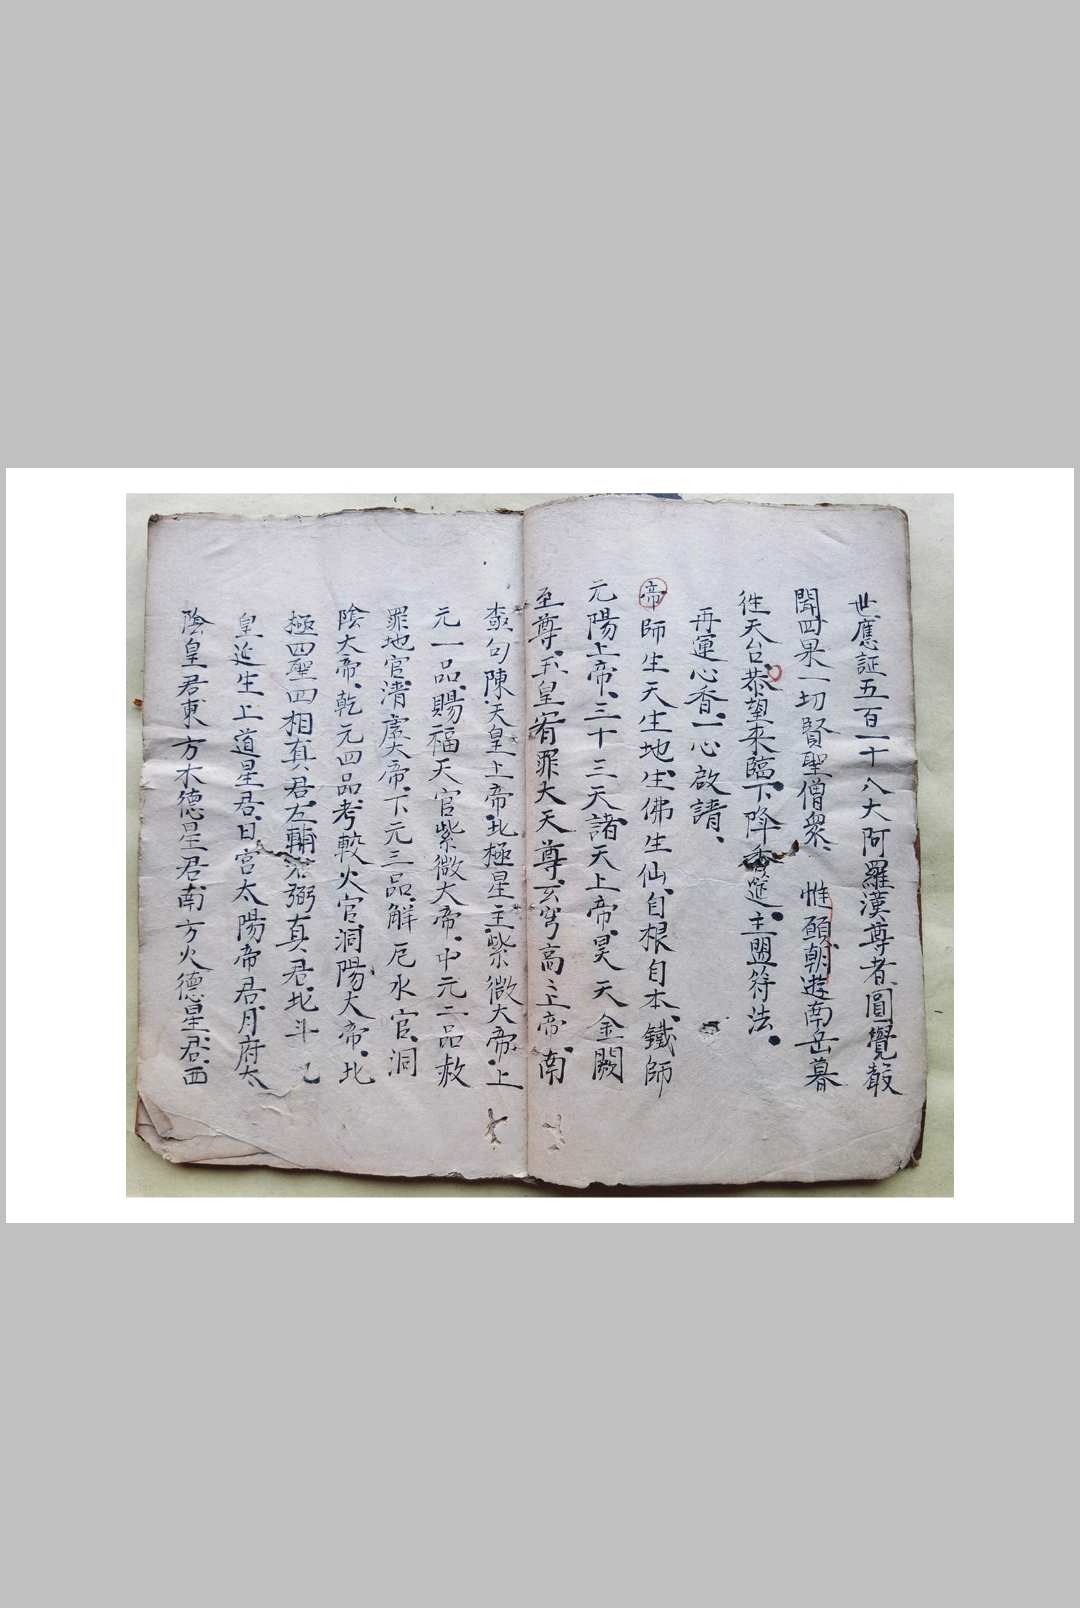 世應証五百一十八大阿羅漢尊者圓覺聲
聞四果一切賢聖僧衆、惟願朝遊南岳暮
徃天台、恭望来臨下降香筵、主盟符法。
再運心香、一心啟請、
帝師生天生地、生佛生仙、自根自本、鐵師
元陽上帝、三十三天諸天上帝、昊天金闕
至尊、玉皇宥罪大天尊、玄穹高上帝、南
極勾陳天皇上帝、北極星主紫微大帝、上
元一品、賜福天官紫微大帝、中元二品赦
罪地官、清虛大帝、下元三品、解厄水官、洞
陰大帝、乾元四品、考較火官洞陽大帝、北
極四聖四相真君、左輔右弼真君、北斗
皇延生上道星君、日宮太陽帝君、月府太
陰皇君東方木德星君南方火德星君、西